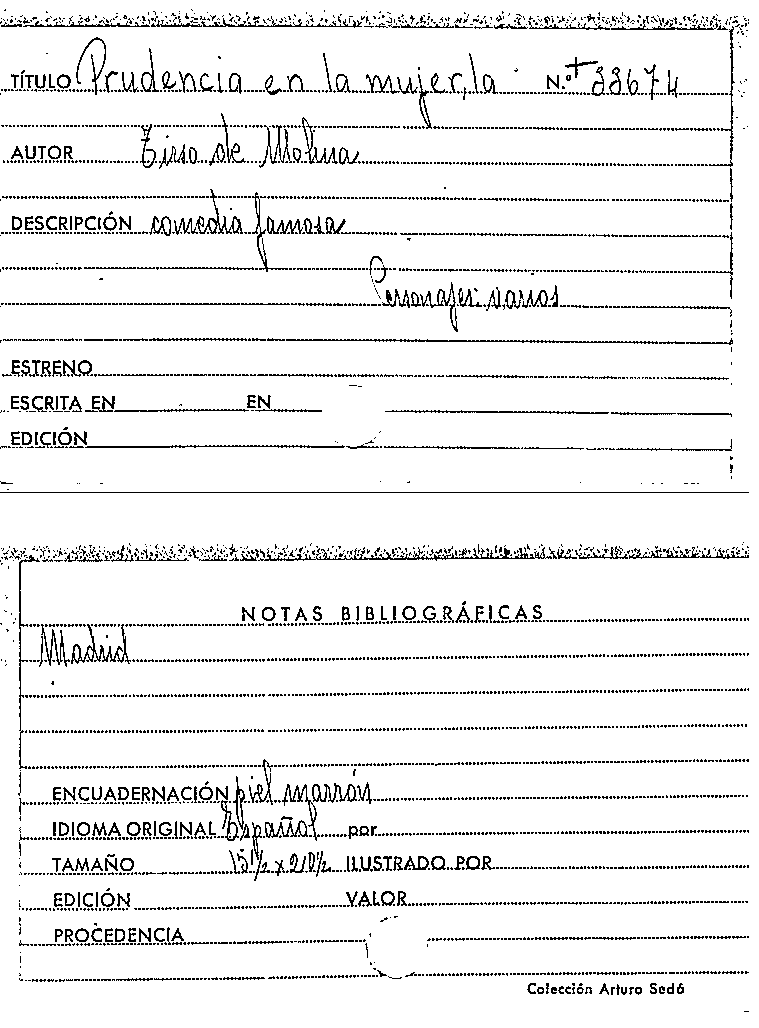 TÍTULO Prudencia en la mujer, la N.º + 33674
AUTOR Tirso de Molina
DESCRIPCIÓN comedia famosa
Personajes: varios
ESTRENO
ESCRITA EN EN
EDICIÓN
NOTAS BIBLIOGRÁFICAS
Madrid
ENCUADERNACIÓN piel marrón
IDIOMA ORIGINAL Español por
TAMAÑO 15½ x 21½ ILUSTRADO POR
EDICIÓN VALOR
PROCEDENCIA
Colección Arturo Sedó